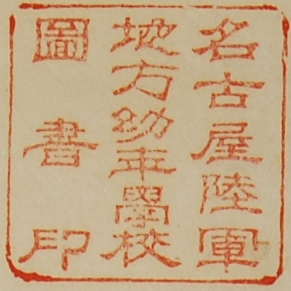 名古屋陸軍
地方幼年學校
圖書印